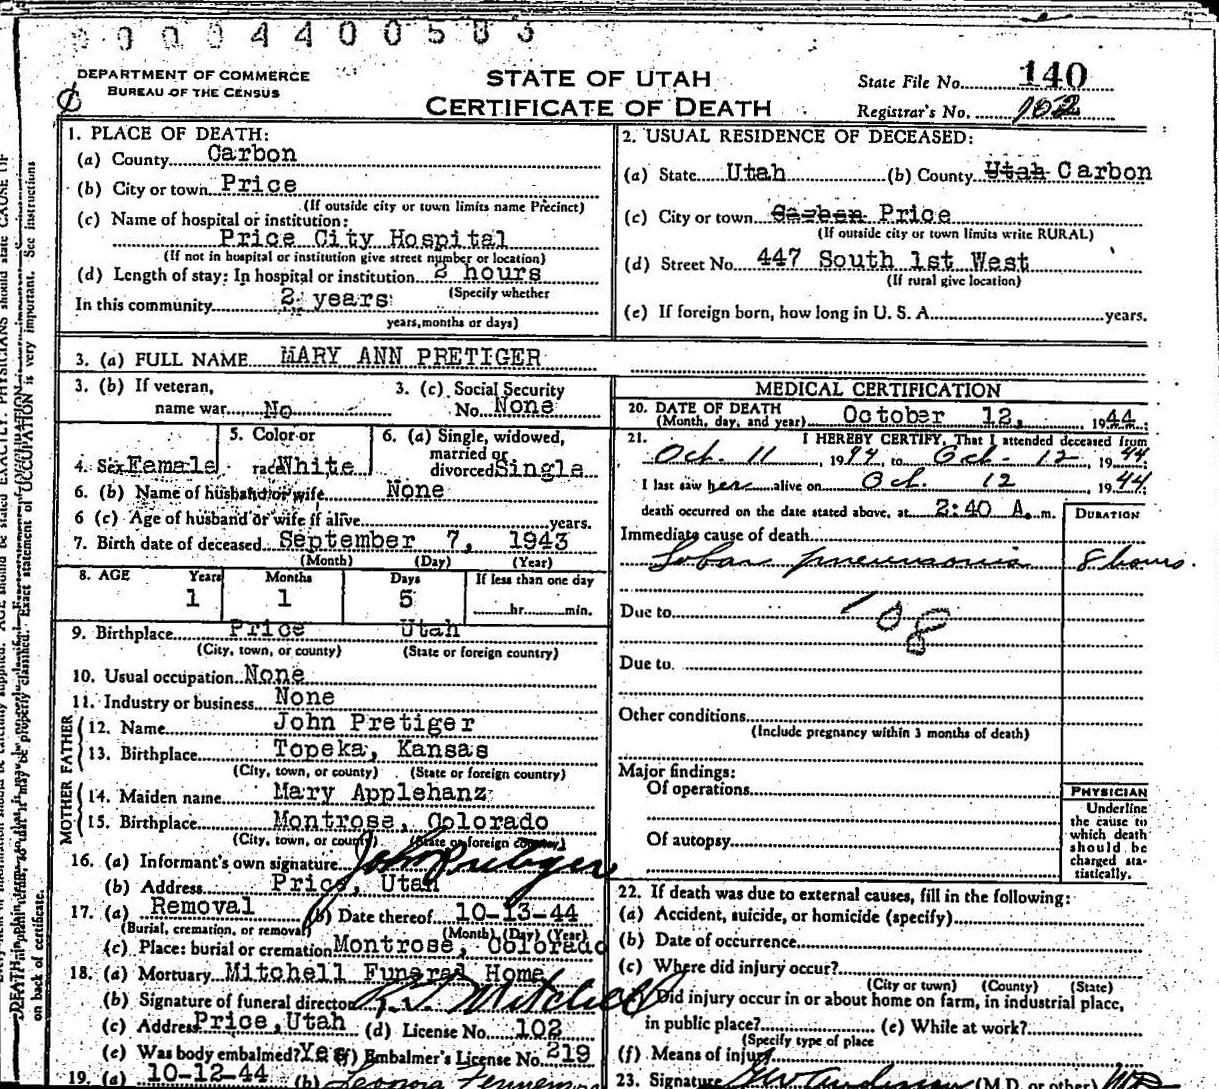 00004400583
DEPARTMENT OF COMMERCE
BUREAU OF THE CENSUS
STATE OF UTAH
CERTIFICATE OF DEATH
State File No. 140
Registrar's No. 102
1. PLACE OF DEATH:
(a) County Carbon
(b) City or town Price
(If outside city or town limits name Precinct)
(c) Name of hospital or institution:
Price City Hospital
(If not in hospital or institution give street number or location)
(d) Length of stay: In hospital or institution 2 hours
(Specify whether
In this community 2 years
years, months or days)
2. USUAL RESIDENCE OF DECEASED:
(a) State Utah (b) County Utah Carbon
(c) City or town Carbon Price
(If outside city or town limits write RURAL)
(d) Street No. 447 South 1st West
(If rural give location)
(e) If foreign born, how long in U. S. A. years.
3. (a) FULL NAME MARY ANN PRETIGER
3. (b) If veteran, name war No
3. (c) Social Security No. None
4. Sex Female
5. Color or race White
6. (a) Single, widowed, married or divorced Single
6. (b) Name of husband or wife None
6 (c) Age of husband or wife if alive years.
7. Birth date of deceased September 7, 1943
(Month) (Day) (Year)
8. AGE Years Months Days If less than one day
1 1 5 hr. min.
9. Birthplace Price Utah
(City, town, or county) (State or foreign country)
10. Usual occupation None
11. Industry or business None
FATHER
12. Name John Pretiger
13. Birthplace Topeka, Kansas
(City, town, or county) (State or foreign country)
MOTHER
14. Maiden name Mary Applehanz
15. Birthplace Montrose, Colorado
(City, town, or county) (State or foreign country)
16. (a) Informant's own signature John Pretiger
(b) Address Price, Utah
17. (a) Removal (b) Date thereof 10-13-44
(Burial, cremation, or removal) (Month) (Day) (Year)
(c) Place: burial or cremation Montrose, Colorado
18. (a) Mortuary Mitchell Funeral Home
(b) Signature of funeral director Mitchell
(c) Address Price, Utah (d) License No. 102
(e) Was body embalmed? Yes (f) Embalmer's License No. 219
19. (a) 10-12-44 (b)
MEDICAL CERTIFICATION
20. DATE OF DEATH
(Month, day, and year) October 12, 1944
21. I HEREBY CERTIFY, That I attended deceased from
Oct. 11, 1944, to Oct. 12, 1944
I last saw her alive on Oct. 12, 1944
death occurred on the date stated above, at 2:40 A. m.
DURATION
Immediate cause of death
Lobar pneumonia 8 hours.
Due to 108
Due to
Other conditions
(Include pregnancy within 3 months of death)
Major findings:
Of operations
Of autopsy
PHYSICIAN
Underline
the cause to
which death
should be
charged sta-
tistically.
22. If death was due to external causes, fill in the following:
(a) Accident, suicide, or homicide (specify)
(b) Date of occurrence
(c) Where did injury occur?
(City or town) (County) (State)
Did injury occur in or about home on farm, in industrial place,
in public place? (e) While at work?
(Specify type of place
(f) Means of injury
23. Signature (M.D. or other) MD
on back of certificate.